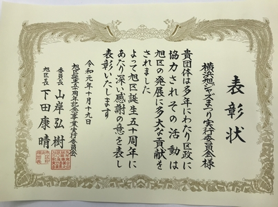 表彰状
横浜旭ジャズまつり実行委員会様
貴団体は多年にわたり区政に
協力されその活動は
旭区の発展に多大な貢献を
されました
よって旭区誕生五十周年に
あたり深い感謝の意を表し
表彰いたします
令和元年十月十九日
旭区誕生五十周年記念事業実行委員会
委員長 山岸弘樹
旭区長 下田康晴